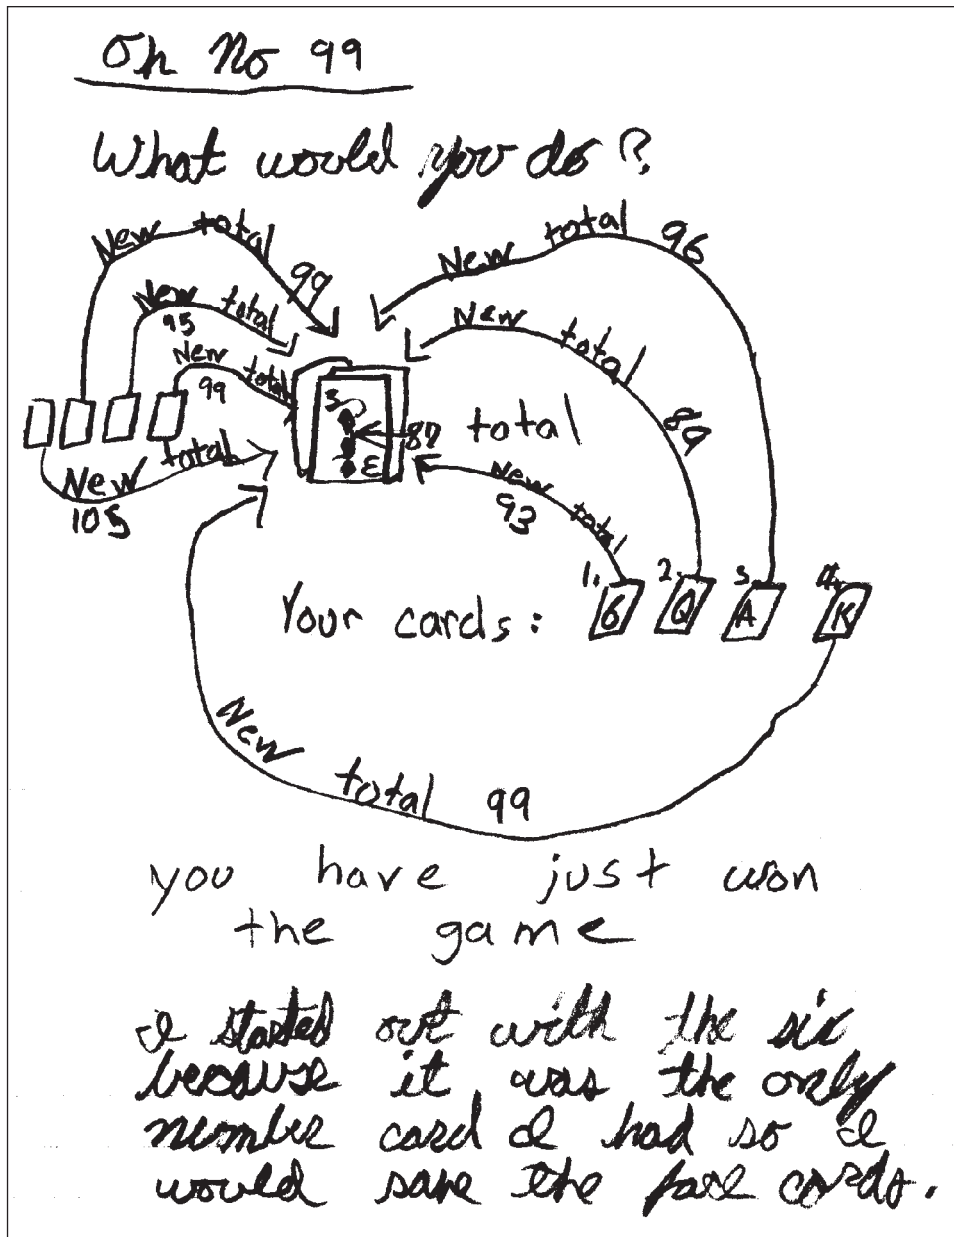 Oh No 99
What would you do?
New total 99
New total 95
New total 99
New total 105
3
87 total
New total 96
New total 89
New total 93
1. 2. 3. 4.
Your cards: 6 Q A K
New total 99
you have just won
the game
I started out with the six
because it was the only
number card I had so I
would save the face cards.